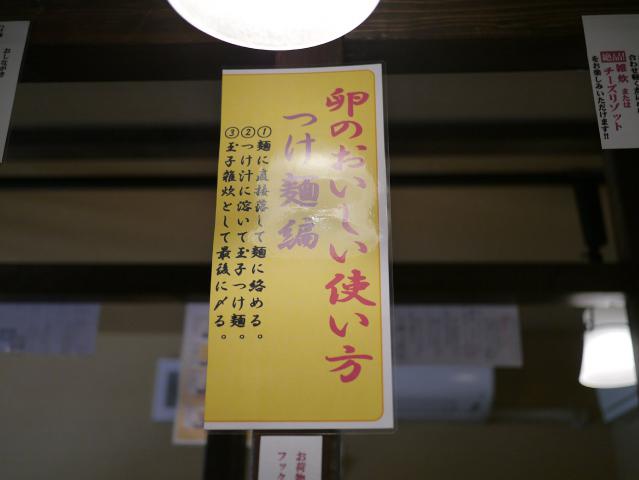 卵のおいしい使い方
つけ麺編
①麺に直接落して麺に絡める。
②つけ汁に溶いて玉子つけ麺。
③玉子雑炊として最後に〆る。
絶品!雑炊または
チーズリゾット
をお楽しみいただけます!!
おしながき
お荷物
フック